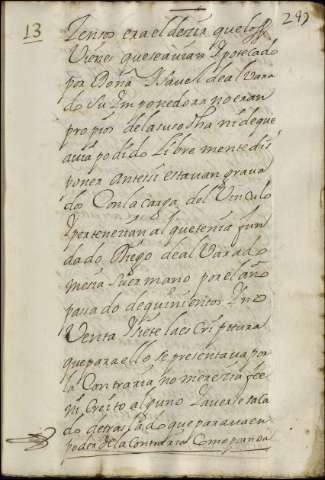 13
297
Zenso era el dezir que los
Vienes que se avian Ypotecado
por Doña Ysavel de alvara
do Su Ymponedora no eran
propios de la suso dha ni de que
avia podido libremente dis
poner antes si estavan grava
do Con la carga del Vinculo
Y pertenezian al que tenia fun
dado Diego de alvarado
mesia Su ermano por el año
pasado de quinientos Y no
Venta Y siete la escripttura
que para ello se presentava por
la Contraria no merezia fee
ni Credito alguno Y aver se saca
do de traslado que parava en
poder de la Contraria Como para